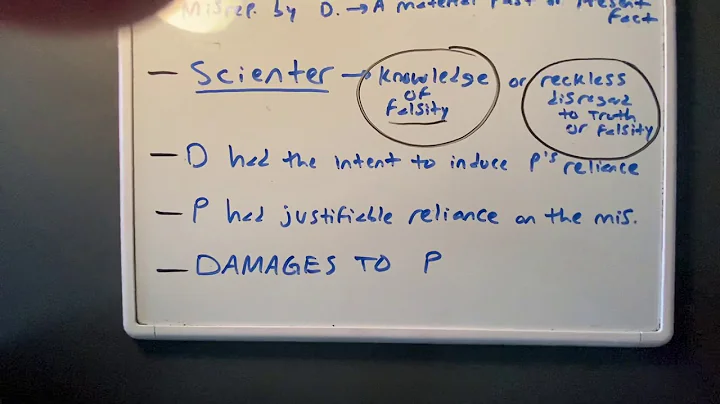 Misrep. by D. → A material Past or Present
Fact
— Scienter → knowledge or reckless
of disregard
Falsity to Truth
or Falsity
— D had the intent to induce P's reliance
— P had justifiable reliance on the mis.
— DAMAGES TO P